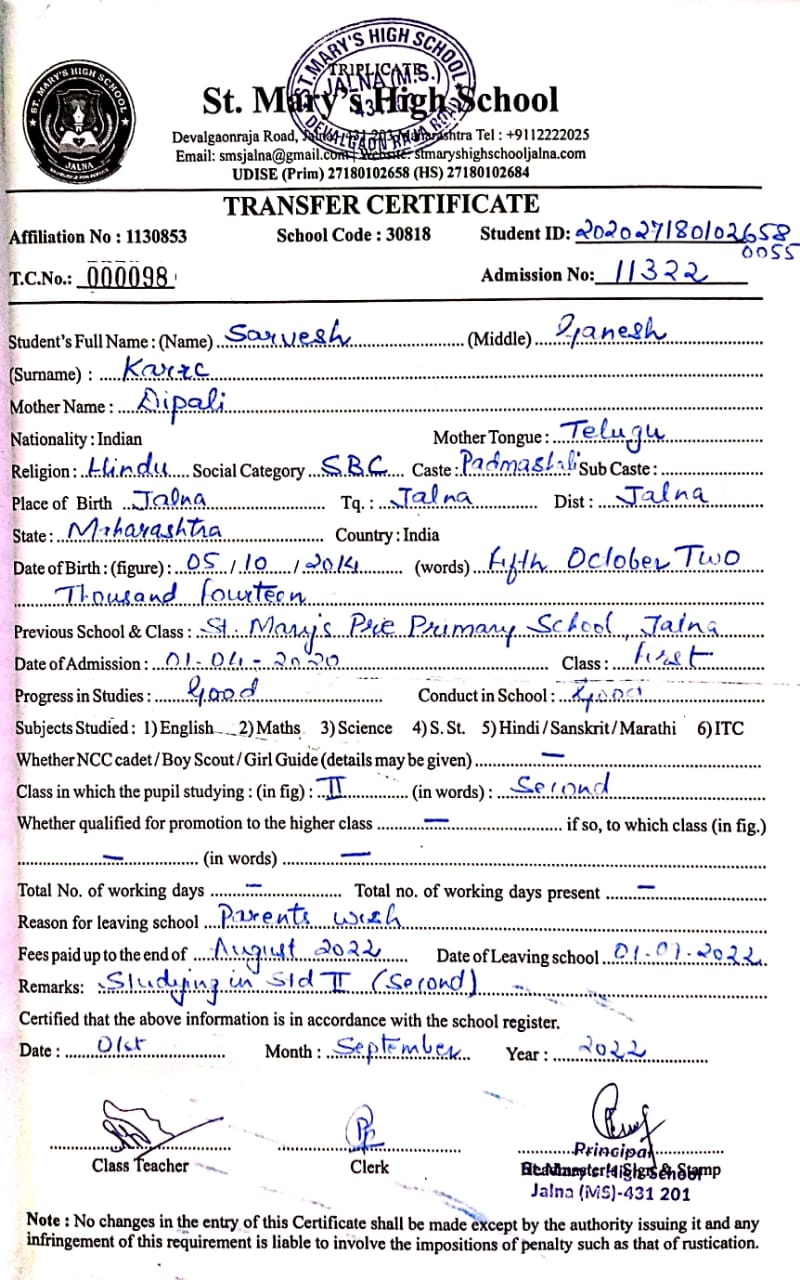 ST. MARY'S HIGH SCHOOL
JALNA
ST. MARY'S HIGH SCHOOL
JALNA (M.S.)
TRIPLICATE
St. Mary's High School
Devalgaonraja Road, Jalna-431 203 Maharashtra Tel : +9112222025
Email: smsjalna@gmail.com | Website: stmaryshighschooljalna.com
UDISE (Prim) 27180102658 (HS) 27180102684
TRANSFER CERTIFICATE
Affiliation No : 1130853 School Code : 30818 Student ID: 202027180102658
0055
T.C.No.: 000098 Admission No: 11322
Student's Full Name : (Name) Sarvesh (Middle) Ganesh
(Surname) :
Mother Name : Dipali
Nationality : Indian Mother Tongue : Telugu
Religion : Hindu Social Category SBC Caste : Padmashali Sub Caste :
Place of Birth Jalna Tq. : Jalna Dist : Jalna
State : Maharashtra Country : India
Date of Birth : (figure) : 05 / 10 / 2014 (words) fifth October Two
Thousand fourteen
Previous School & Class : St. Mary's Pre Primary School, Jalna
Date of Admission : 01-04-2020 Class : first
Progress in Studies : Good Conduct in School : Good
Subjects Studied : 1) English 2) Maths 3) Science 4) S. St. 5) Hindi / Sanskrit / Marathi 6) ITC
Whether NCC cadet / Boy Scout / Girl Guide (details may be given) —
Class in which the pupil studying : (in fig) : II (in words) : Second
Whether qualified for promotion to the higher class — if so, to which class (in fig.)
— (in words) —
Total No. of working days — Total no. of working days present —
Reason for leaving school Parents wish
Fees paid up to the end of August 2022 Date of Leaving school 2022
Remarks: Studying in Std II (Second)
Certified that the above information is in accordance with the school register.
Date : 01st Month : September Year : 2022
Class Teacher Clerk Principal
Headmaster's Sign & Stamp
Jalna (MS)-431 201
Note : No changes in the entry of this Certificate shall be made except by the authority issuing it and any
infringement of this requirement is liable to involve the impositions of penalty such as that of rustication.